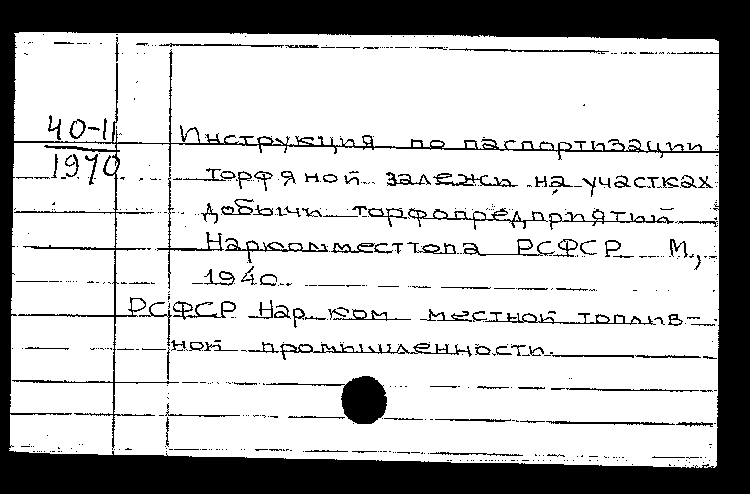 40-II
1970
Инструкция по паспортизации
торфяной залежи на участках
добычи торфопредприятий
Наркомместтопа РСФСР М.,
1940.
РСФСР Нар. ком. местной топлив-
ной промышленности.